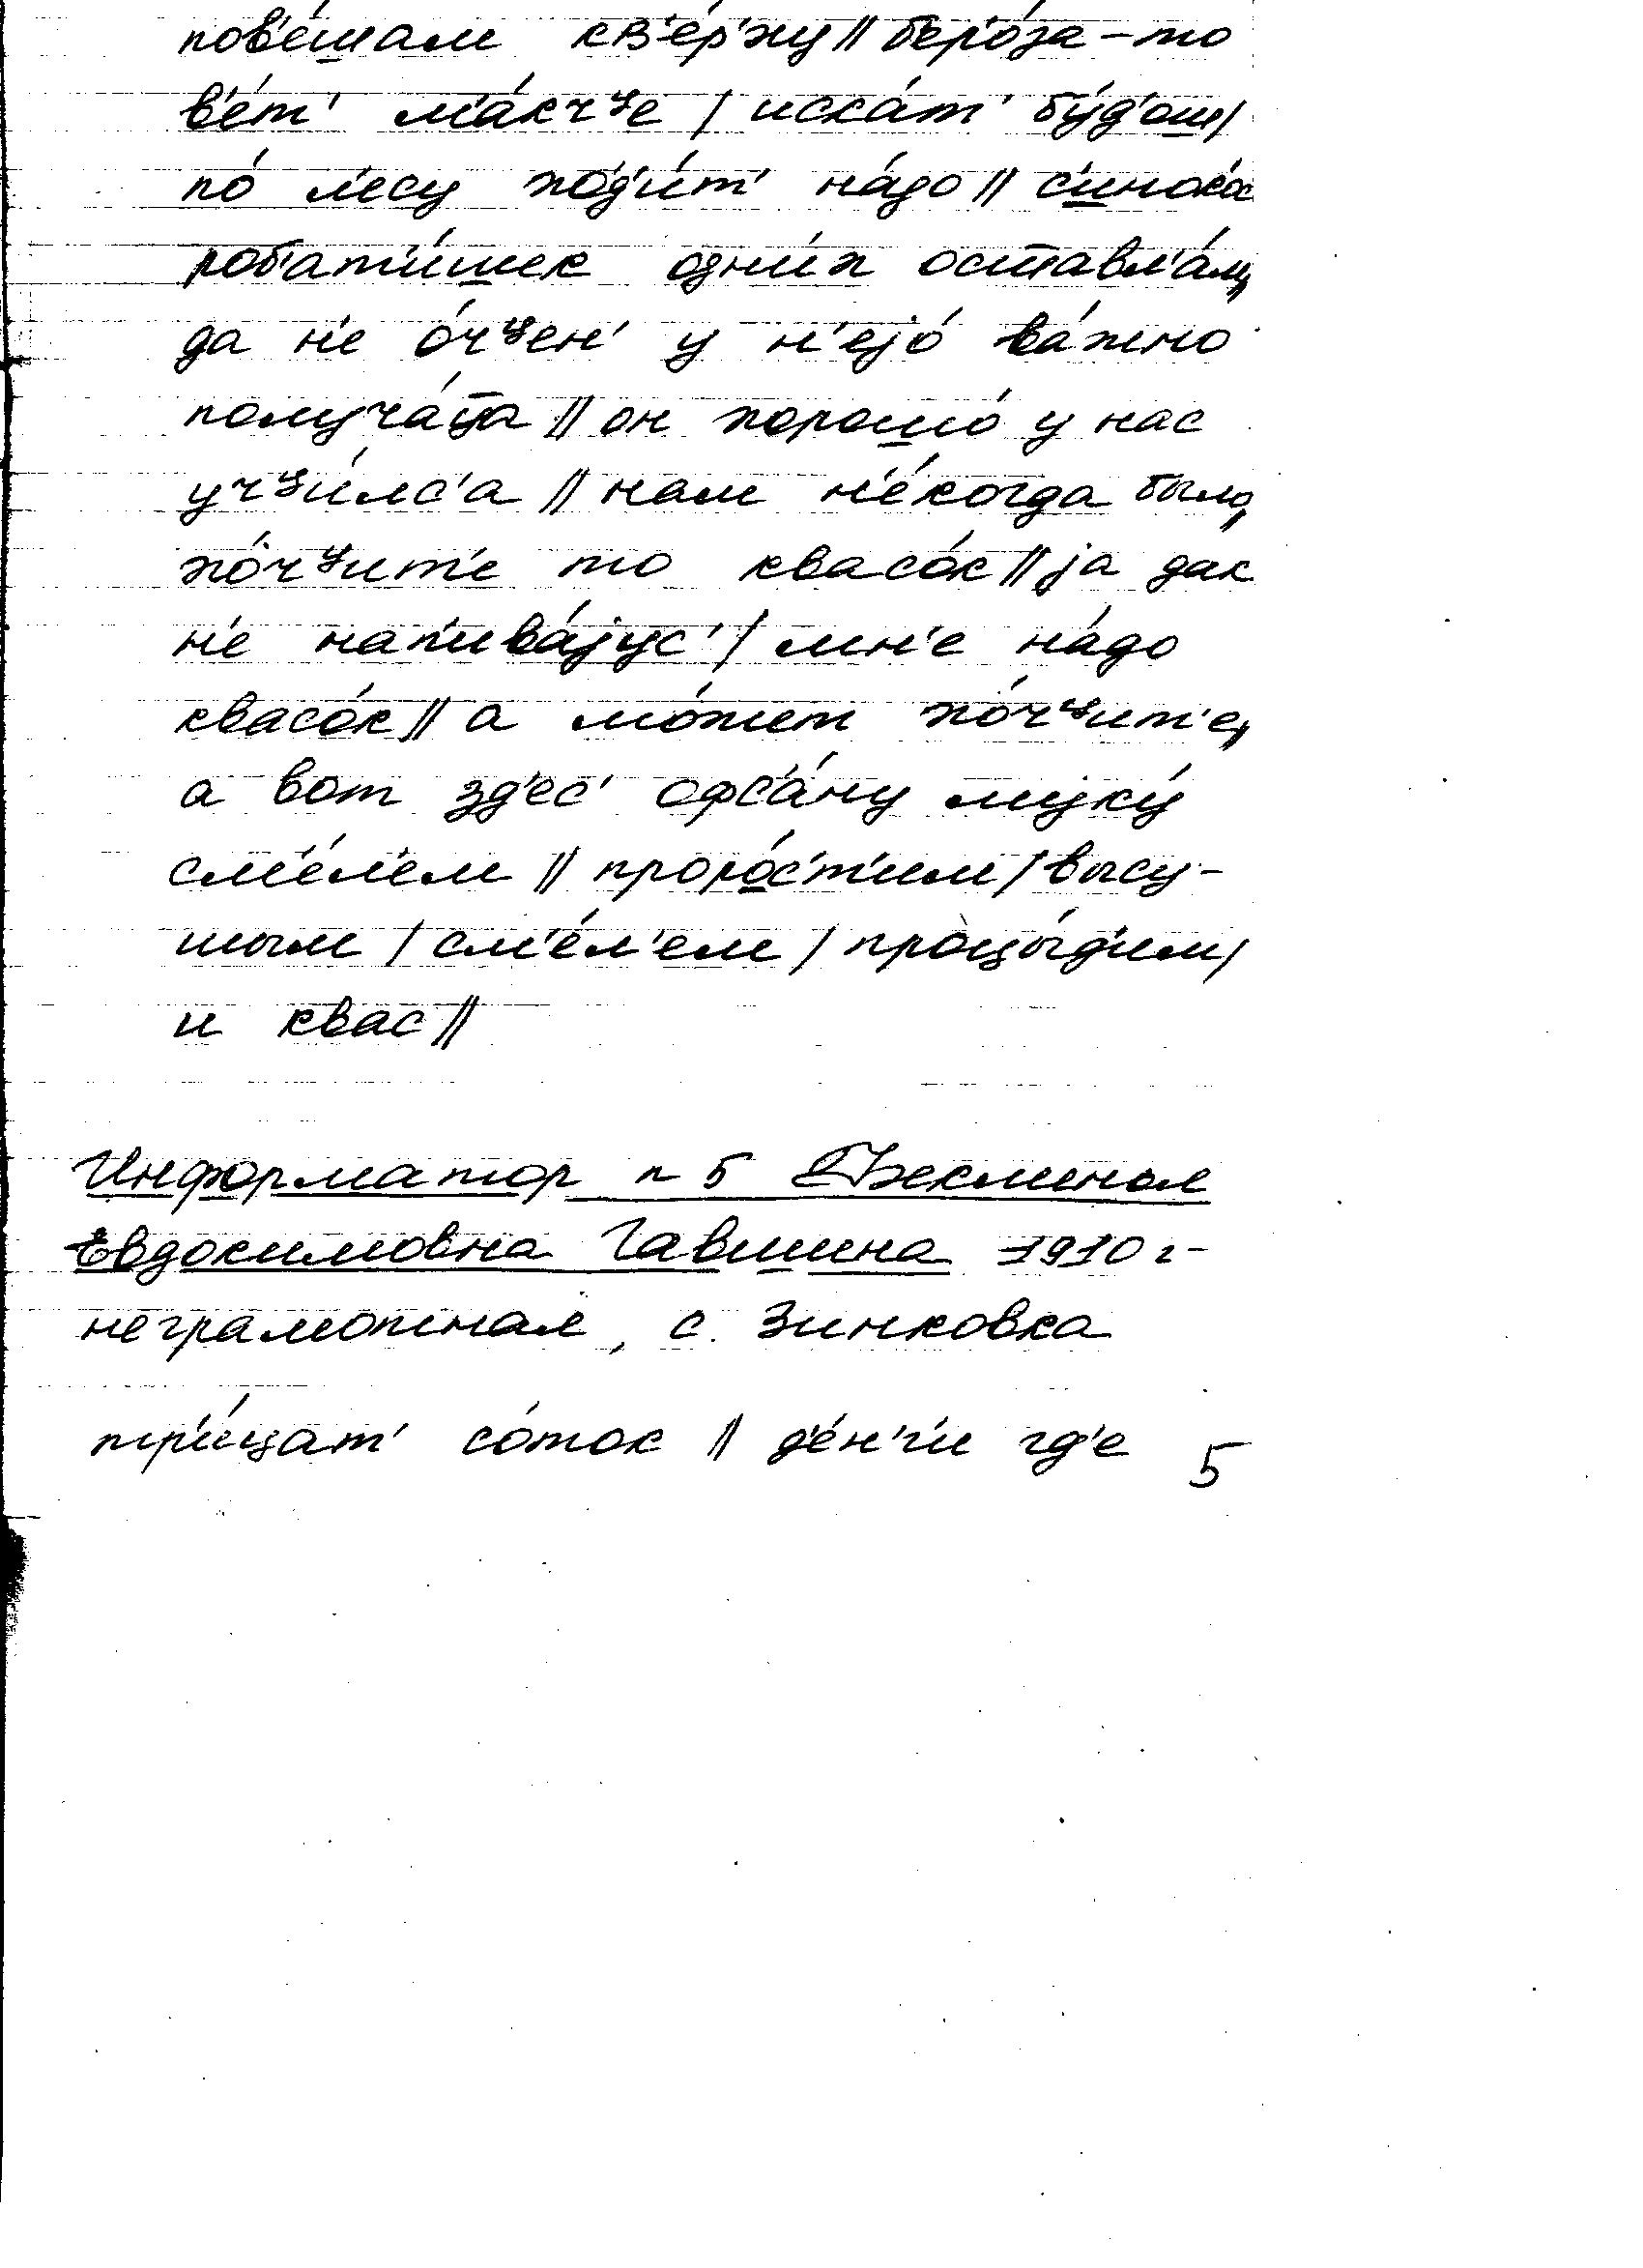 пов'е́шам кв'е́р'ху || бер'о́за – то
в'е́т' м'а́кч'че / иска́т' бу́д'ош /
по́ л'есу ход'и́т' на́до || с'иноко́с
роб'ат'и́шек одни́х оставл'а́м ||
да н'е о́ч'чен' у н'ејо́ ва́жно
получа́ца || он хорошо́ у нас
уч'чи́лс'а || нам н'е́когда было ||
хо́ч'чит'е то квасо́к || ја дак
н'е нап'ива́јус' / мн'е на́до
квасо́к || а мо́жет хо́ч'чит'е ||
а вот зд'ес' офс'а́ну муку́
см'е́л'ем || проро́ст'им / высу-
шым / см'е́л'ем / процы́д'им /
и квас ||
Информатор n 5
Евдокимовна Гавшина 1910 г-
неграмотная, с. Зинковка
тр'и́цат' со́ток || д'е́н'г'и гд'е
5